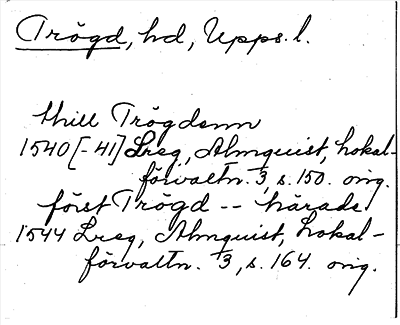 Trögd, hd, Upps. l.
thill Trögdenn
1540[-41] Lreg, Almquist, Lokal-
förvaltn. 3, s. 150. orig.
först Trögd -- härade
1544 Lreg, Almquist, Lokal-
förvaltn. 3, s. 164. orig.